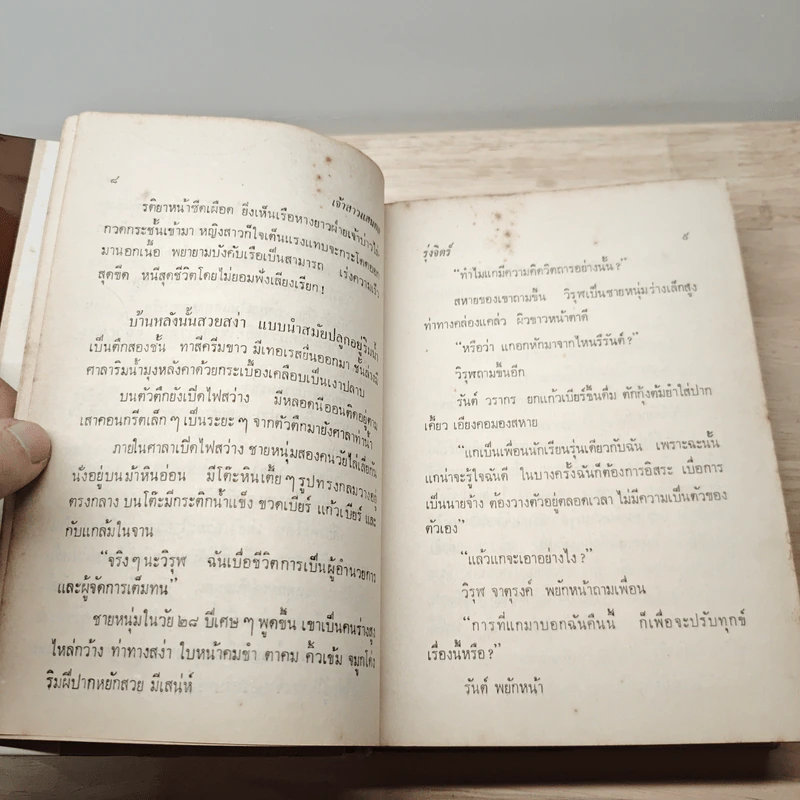 ๘
เจ้าสาวแสน
รติยาหน้าซีดเผือด ยิ่งเห็นเรือหางยาวฝ่ายเจ้าบ่าวไล่
กวดกระชั้นเข้ามา หญิงสาวก็ใจเต้นแรงแทบจะกระโดดออก
มานอกเนื้อ พยายามบังคับเรือเป็นสามารถ เร่งความเร็ว
สุดขีด หนีสุดชีวิตโดยไม่ยอมฟังเสียงเรียก!
บ้านหลังนั้นสวยสง่า แบบนำสมัยปลูกอยู่ริมน้ำ
เป็นตึกสองชั้น ทาสีครีมขาว มีเทอเรสยื่นออกมา ชั้นล่างมี
ศาลาริมน้ำมุงหลังคาด้วยกระเบื้องเคลือบเป็นเงาปลาบ
บนตัวตึกยังเปิดไฟสว่าง มีหลอดนีออนติดอยู่ตาม
เสาคอนกรีตเล็กๆ เป็นระยะๆ จากตัวตึกมายังศาลาท่าน้ำ
ภายในศาลาเปิดไฟสว่าง ชายหนุ่มสองคนวัยไล่เลี่ยกัน
นั่งอยู่บนม้าหินอ่อน มีโต๊ะหินเตี้ยๆ รูปทรงกลมวางอยู่
ตรงกลาง บนโต๊ะมีกระติกน้ำแข็ง ขวดเบียร์ แก้วเบียร์ และ
กับแกล้มในจาน
“จริงๆ นะวิรุฬ ฉันเบื่อชีวิตการเป็นผู้อำนวยการ
และผู้จัดการเต็มทน”
ชายหนุ่มในวัย ๒๘ ปีเศษๆ พูดขึ้น เขาเป็นคนร่างสูง
ไหล่กว้าง ท่าทางสง่า ใบหน้าคมขำ ตาคม คิ้วเข้ม จมูกโด่ง
ริมฝีปากหยักสวย มีเสน่ห์
รุ่งจิตร์
๙
“ทำไมแกมีความคิดวิตถารอย่างนั้น?”
สหายของเขาถามขึ้น วิรุฬเป็นชายหนุ่มร่างเล็กสูง
ท่าทางคล่องแคล่ว ผิวขาวหน้าตาดี
“หรือว่า แกอกหักมาจากไหนรึรันต์?”
วิรุฬถามขึ้นอีก
รันต์ วรากร ยกแก้วเบียร์ขึ้นดื่ม ตักกุ้งต้มยำใส่ปาก
เคี้ยว เอียงคอมองสหาย
“แกเป็นเพื่อนนักเรียนรุ่นเดียวกับฉัน เพราะฉะนั้น
แกน่าจะรู้ใจฉันดี ในบางครั้งฉันก็ต้องการอิสระ เบื่อการ
เป็นนายจ้าง ต้องวางตัวอยู่ตลอดเวลา ไม่มีความเป็นตัวของ
ตัวเอง”
“แล้วแกจะเอาอย่างไง?”
วิรุฬ จาตุรงค์ พยักหน้าถามเพื่อน
“การที่แกมาบอกฉันคืนนี้ ก็เพื่อจะปรับทุกข์
เรื่องนี้หรือ?”
รันต์ พยักหน้า